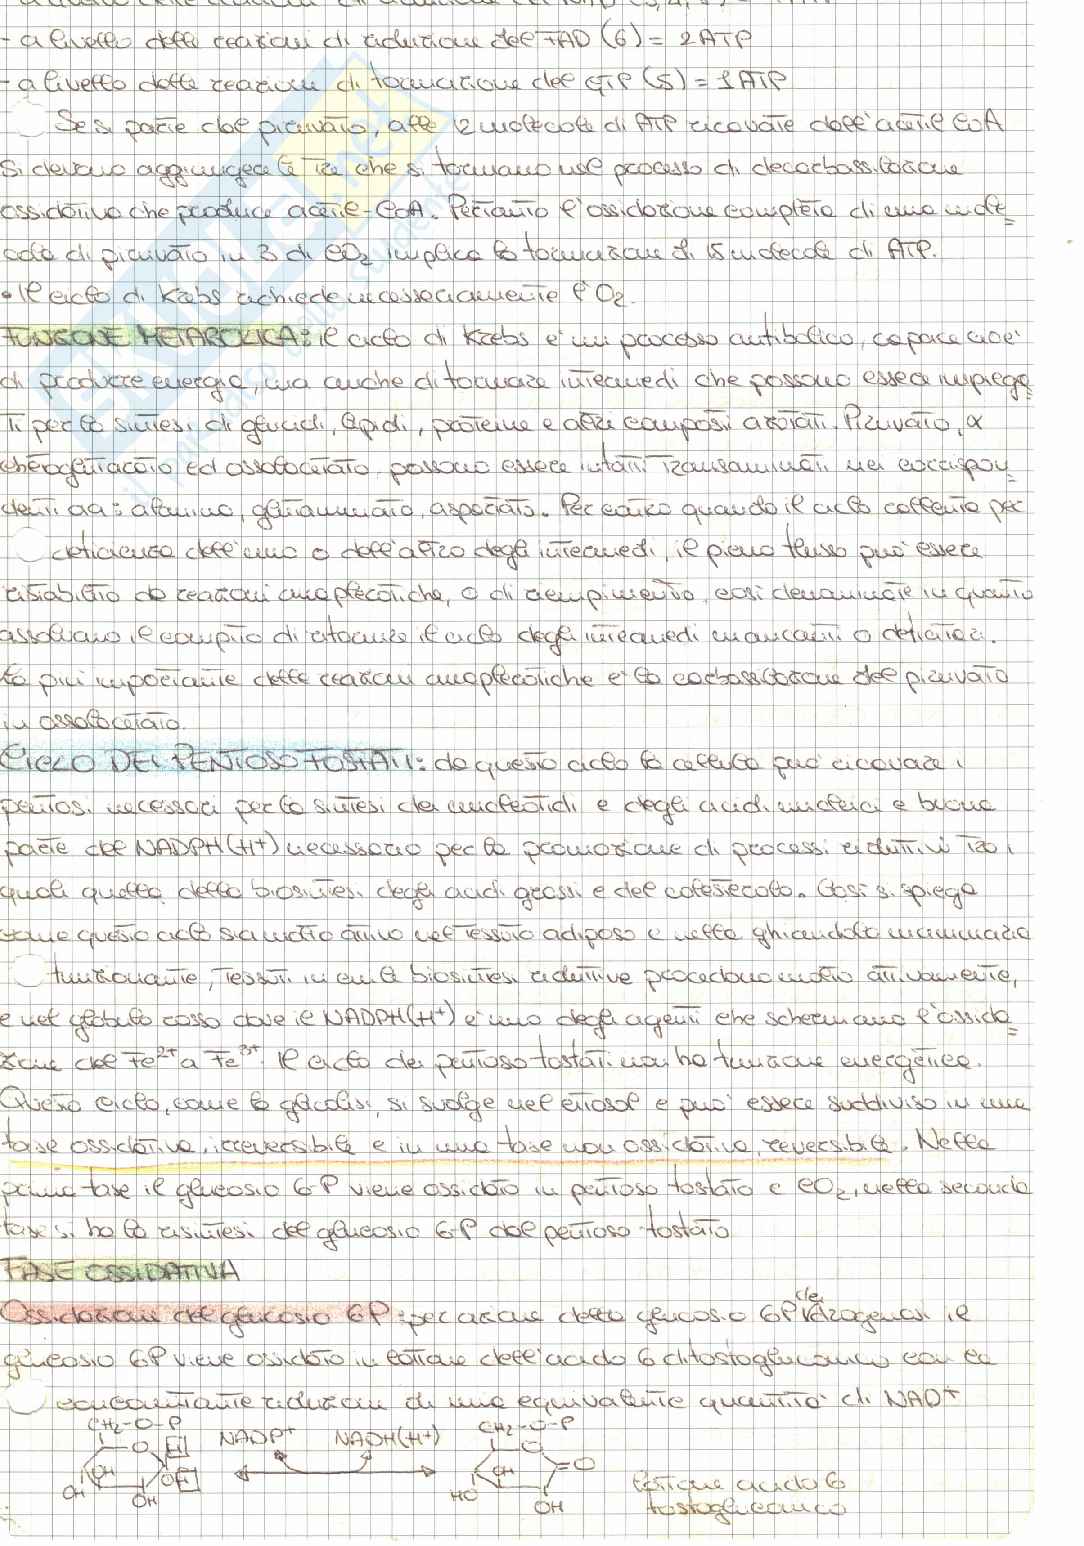 - a livello delle reazioni di riduzione del FAD (6) = 2ATP
- a livello delle reazioni di formazione del GTP (5) = 1ATP
Se si parte dal piruvato, alle 12 molecole di ATP ricavate dall'acetil CoA
si devono aggiungere le tre che si formano nel processo di decarbossilazione
ossidativa che produce acetil-CoA. Pertanto l'ossidazione completa di una mole=
cola di piruvato in 3 di CO2 implica la formazione di 15 molecole di ATP.
• Il ciclo di Krebs richiede necessariamente l'O2.
FUNZIONE METABOLICA: il ciclo di Krebs è un processo anfibolico, capace cioè
di produrre energia, ma anche di formare intermedi che possono essere impiega=
ti per la sintesi di glucidi, lipidi, proteine e altri composti azotati. Piruvato, α
chetoglutarato ed ossalacetato possono essere infatti transaminati nei corrispon=
denti aa: alanina, glutammato, aspartato. Per contro quando il ciclo rallenta per
deficienza dell'uno o dell'altro degli intermedi, il pieno flusso può essere
ristabilito da reazioni anaplerotiche, o di riempimento, così denominate in quanto
assolvono il compito di rifornire il ciclo degli intermedi mancanti o deficitari.
La più importante delle reazioni anaplerotiche è la carbossilazione del piruvato
in ossalacetato.
CICLO DEI PENTOSO FOSFATI: da questo ciclo la cellula può ricavare i
pentosi necessari per la sintesi dei nucleotidi e degli acidi nucleici e buona
parte del NADPH(H+) necessario per la promozione di processi riduttivi tra i
quali quello della biosintesi degli acidi grassi e del colesterolo. Così si spiega
come questo ciclo sia molto attivo nel tessuto adiposo e nella ghiandola mammaria
funzionante, tessuti in cui le biosintesi riduttive procedono molto attivamente,
e nel globulo rosso dove il NADPH(H+) è uno degli agenti che schermano l'ossida=
zione del Fe2+ a Fe3+. Il ciclo dei pentoso fosfati non ha funzione energetica.
Questo ciclo, come la glicolisi, si svolge nel citosol e può essere suddiviso in una
fase ossidativa, irreversibile e in una fase non ossidativa, reversibile. Nella
prima fase il glucosio 6P viene ossidato in pentoso fosfato e CO2, nella seconda
fase si ha la risintesi del glucosio 6-P dal pentoso-fosfato
FASE OSSIDATIVA
Ossidazione del glucosio 6P: per azione della glucosio 6P deidrogenasi il
glucosio 6P viene ossidato in lattone dell'acido 6 difosfogluconico con la
concomitante riduzione di una equivalente quantità di NAD+
CH2-O-P NADP+ NADH(H+) CH2-O-P
O H O
OH OH OH =O
OH OH HO OH
lattone acido 6
fosfogluconico